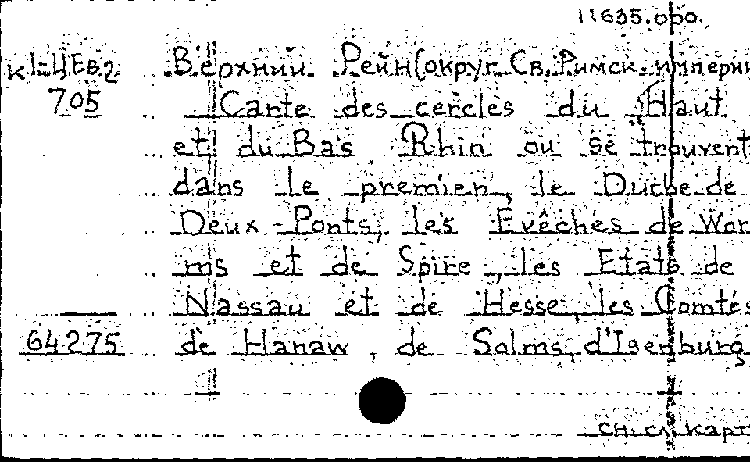 11635.000.
К 1-ЦЕв.2 Верхний Рейн (округ Св. Римск. империи
705 Carte des cercles du Haut
et du Bas Rhin ou se trouvent
dans le premier, le Duché de
Deux-Ponts, les Evêches de Wor
ms et de Spire, les Etats de
Nassau et de Hesse, les Comtés
64275 de Hanaw, de Solms, d'Isenburg
см. сл. карт